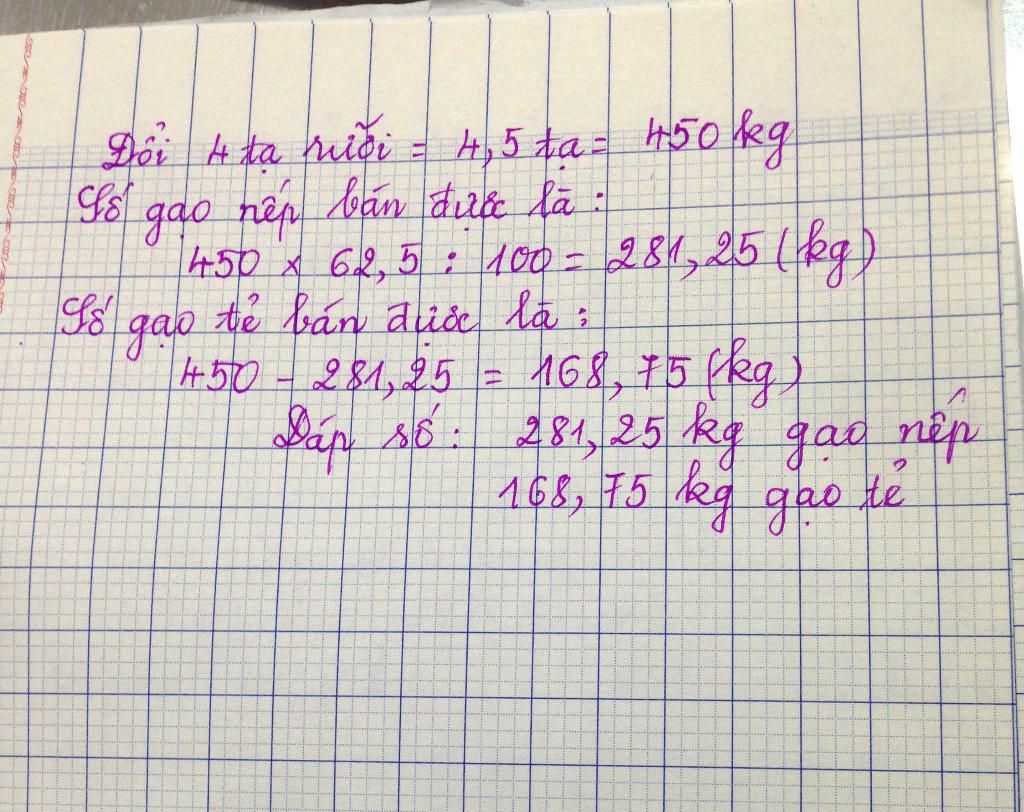 Đổi 4 tạ rưỡi = 4,5 tạ = 450 kg
Số gạo nếp bán được là :
450 x 62,5 : 100 = 281,25 (kg)
Số gạo tẻ bán được là :
450 - 281,25 = 168,75 (kg)
Đáp số : 281,25 kg gạo nếp
168,75 kg gạo tẻ